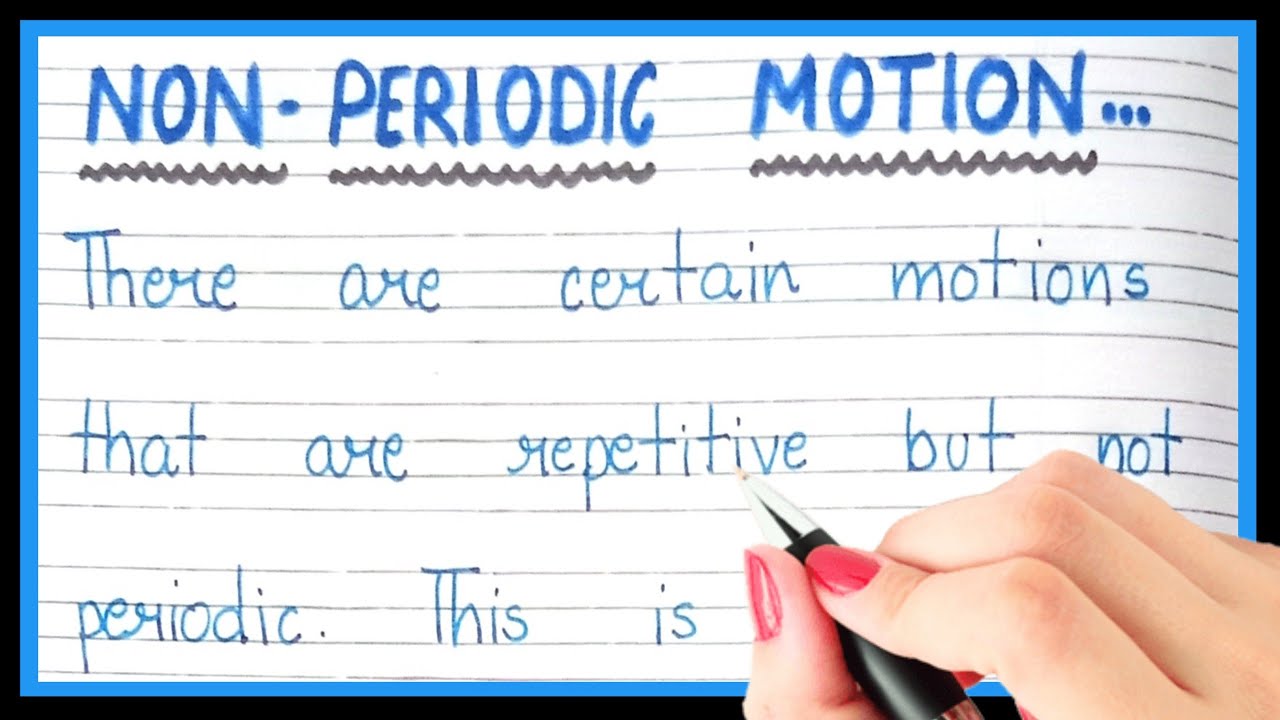 NON-PERIODIC MOTION...
There are certain motions
that are repetitive but not
periodic. This is